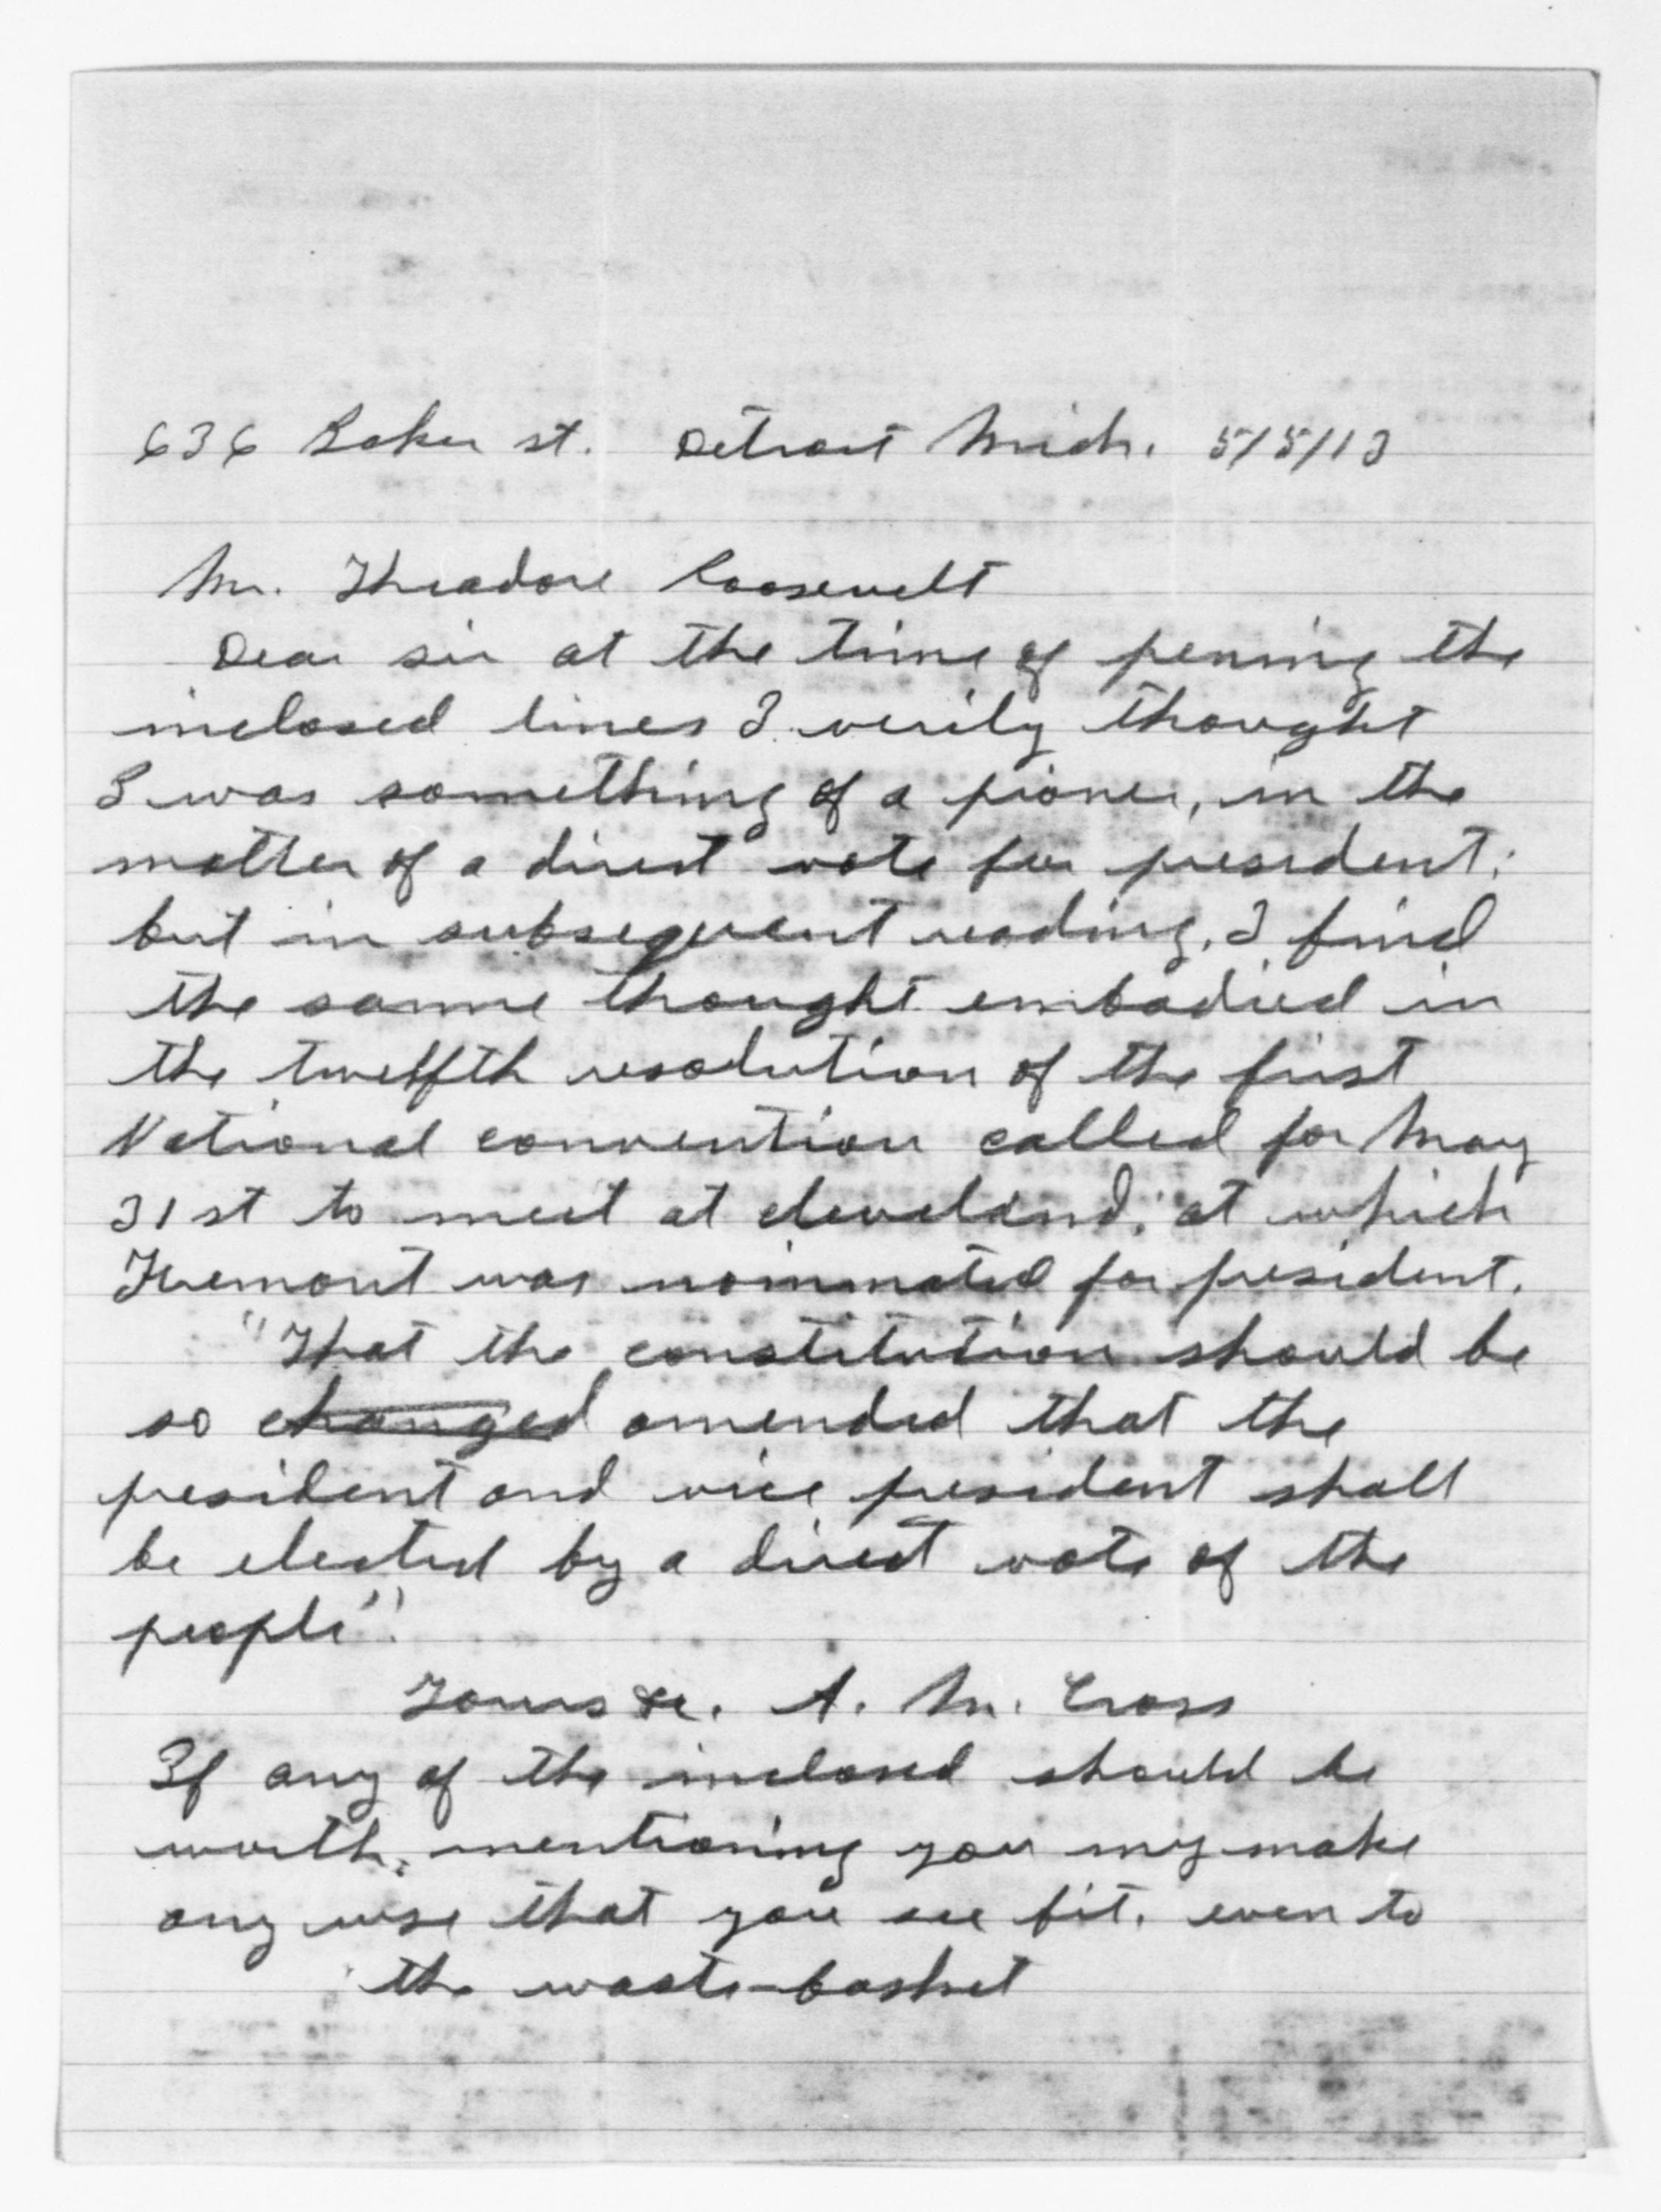 636 Baker st. Detroit Mich. 5/5/13
Mr. Theadore Roosevelt
Dear sir at the time of pening the
inclosed lines I verily thought
I was something of a pioner, in the
matter of a direct vote for president;
but in subsequent reading, I find
the same thought embodied in
the twelfth resolution of the first
National convention called for May
31st to meet at cleveland; at which
Fremont was nominated for president.
"That the constitution should be
so changed amended that the
president and vice president shall
be elected by a direct vote of the
people".
Yours &c. A. M. Cross
If any of the inclosed should be
worth, mentioning you my make
any use that you see fit. even to
the waste-basket